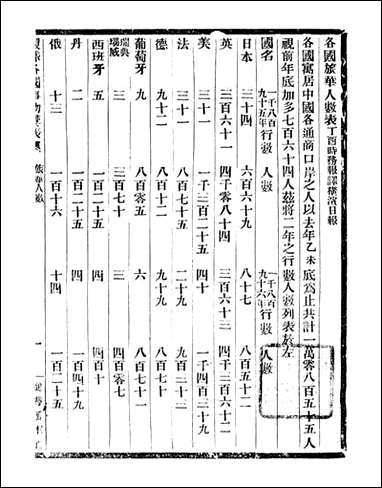 各國旅華人數表 丁酉時務報譯橫濱日報
各國寓居中國各通商口岸之人以去年乙未底為止共計一萬零八百五十五人
視前年底加多七百六十四人茲將二年之行數人數列表於左
國名 一千八百九十五年行數 人數 一千八百九十六年行數 人數
日本 三十四 六百六十九 八十七 八百五十二
英 三百六十一 四千零八十四 三百六十三 四千三百六十二
美 三十一 一千三百二十五 四十 一千四百三十九
法 三十一 八百七十五 二十九 九百三十三
德 九十二 八百十二 九十九 八百七十
葡萄牙 九 八百零五 六 八百七十一
瑞典瑙威 三 三百七十 三 四百零七
西班牙 五 三百五十五 四 四百十
丹 二 一百二十八 四 一百四十九
俄 十三 一百十六 十四 一百二十五
旅華人數
一